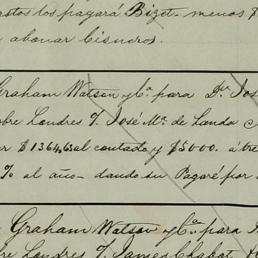 astos los pagará Bizet - menos $
abonar Cisneros.
Graham Watson y Cª. para Dn. Jos
bre Londres f. José Mª. de Landa
$1364,63 al contado, y $5000. á tre
% al año - dando su Pagaré por
Graham Watson y Cª. para
bre Londres f. James Chabot